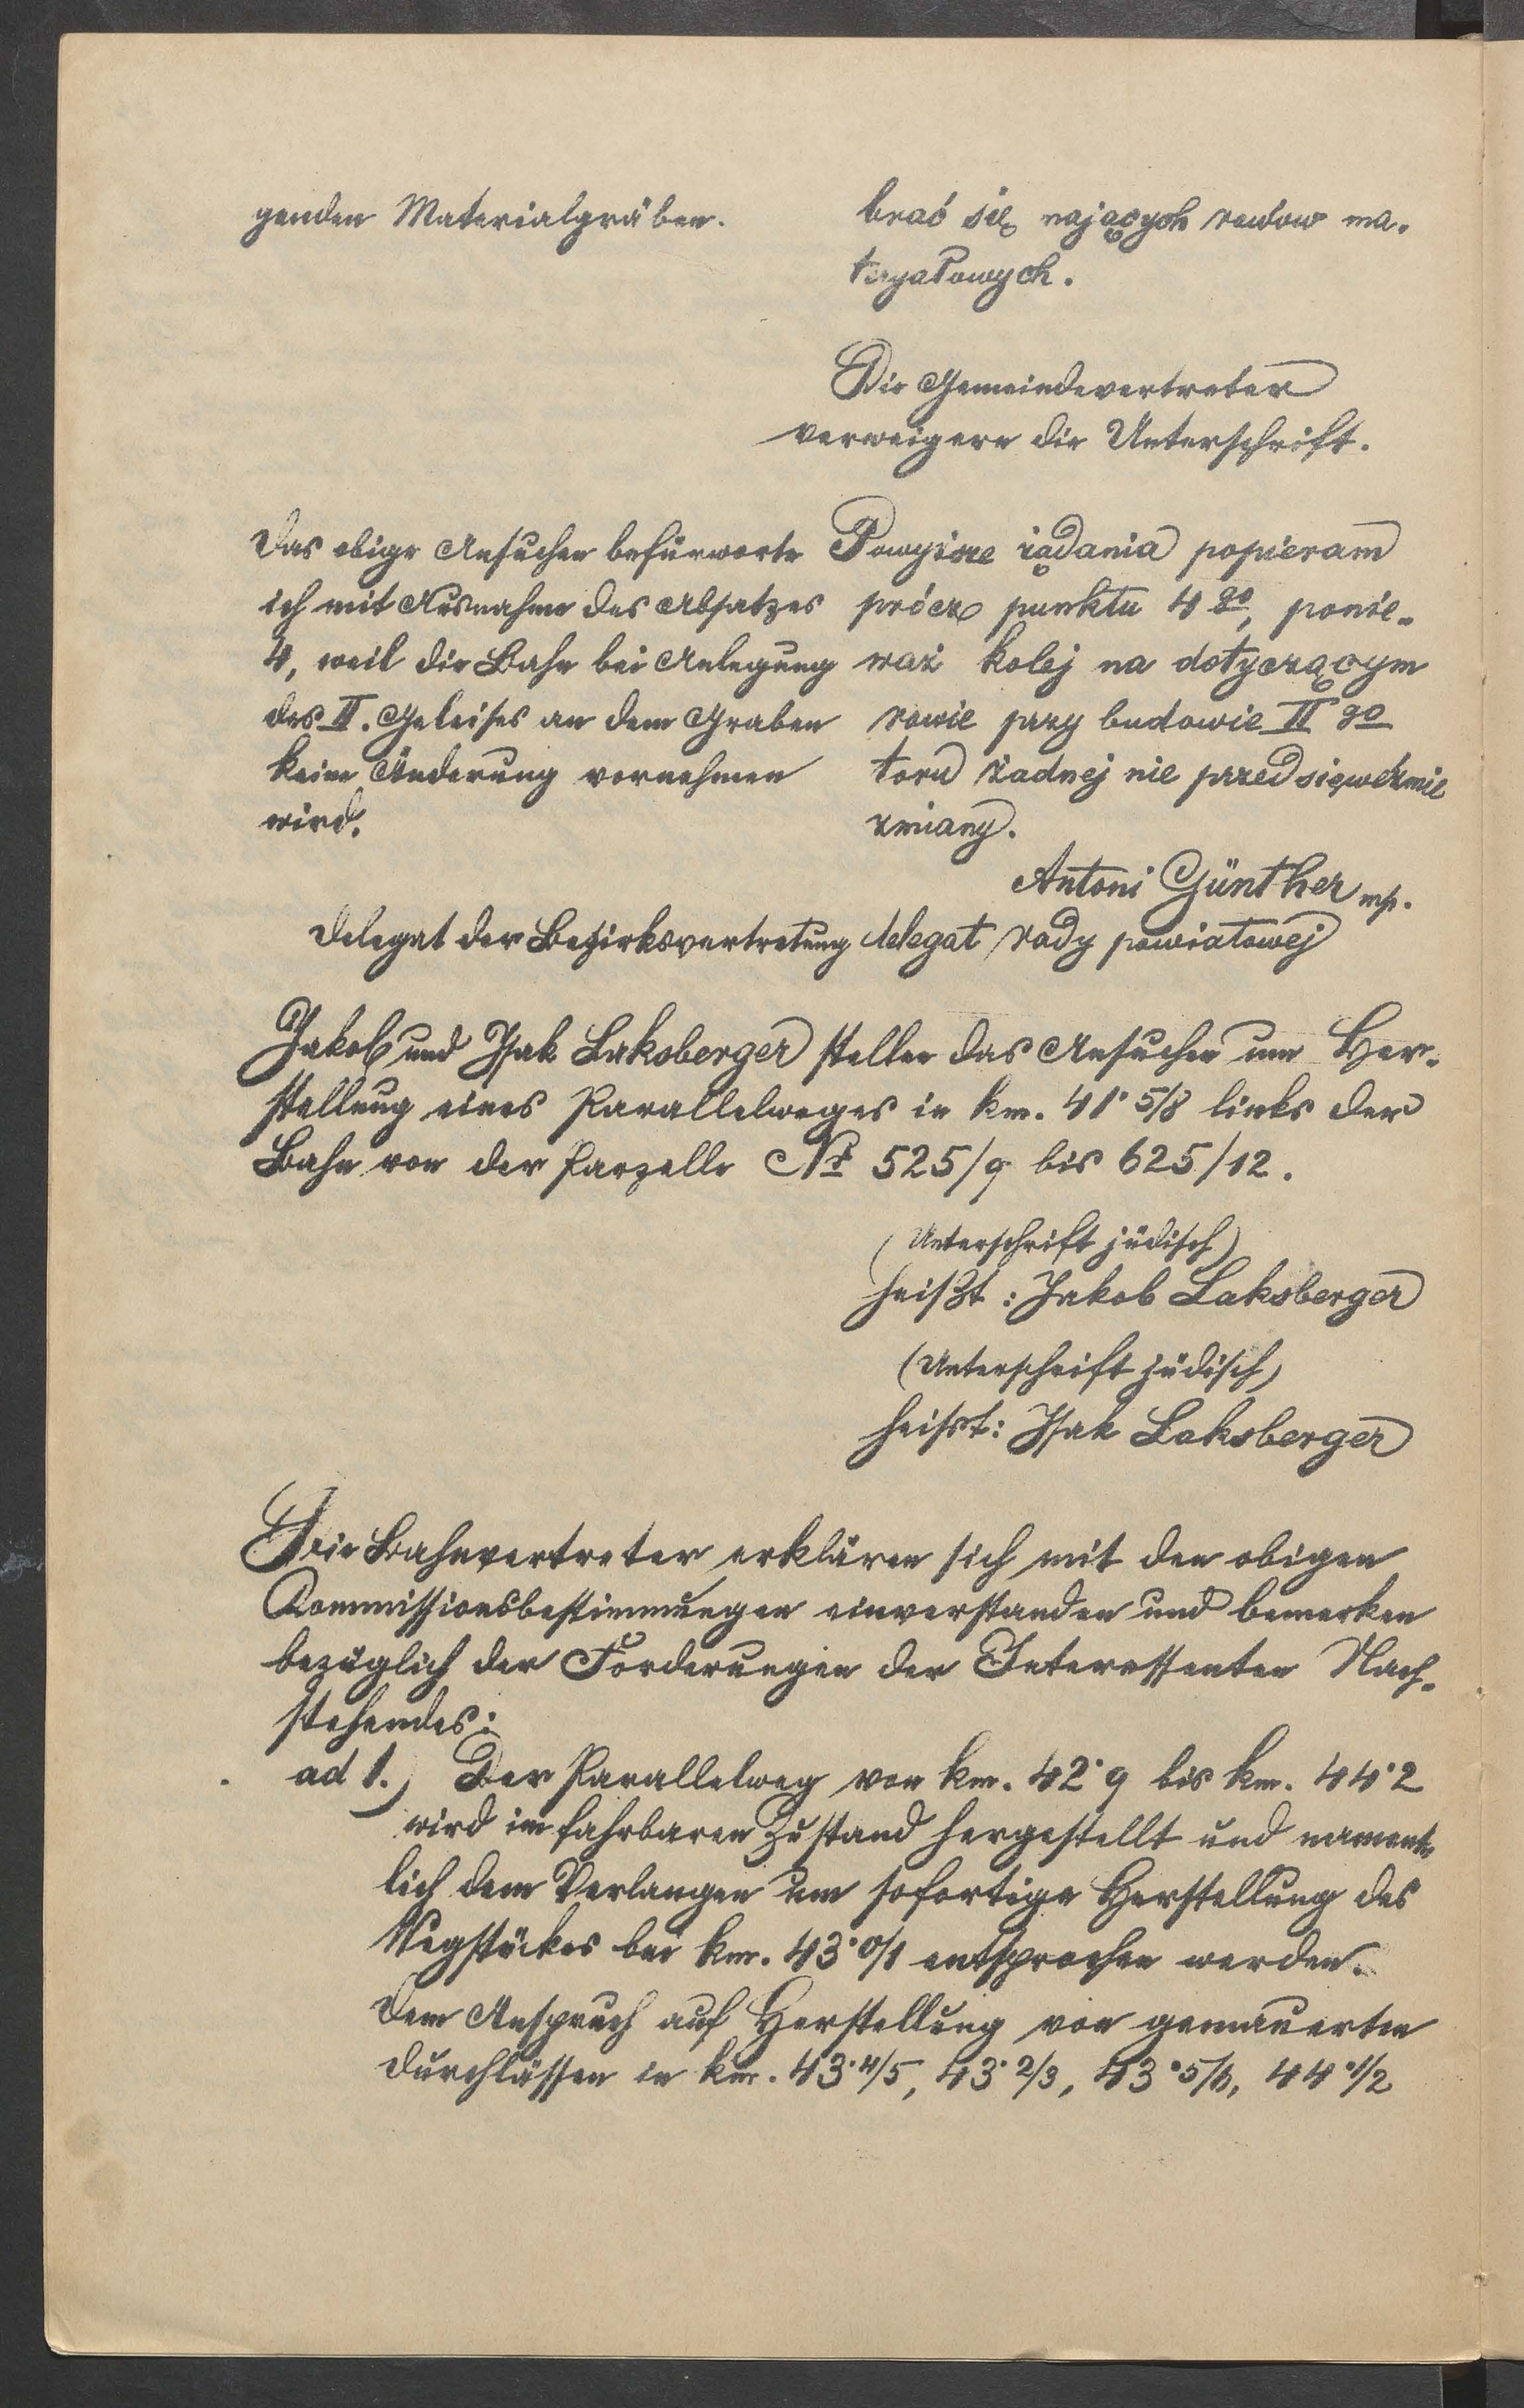 genden Materialgräben.
brać się mających rowów ma-
teryałowych.
Die Gemeindevertreter
verweigern die Unterschrift.
Das obige Ansuchen befürworte
ich mit Ausnahme des Absatzes
4, weil die Bahn bei Anlegung
des II. Geleises an dem Graben
keine Änderung vornehmen
wird.
Powyższe żądania popieram
prócz punktu 4go, ponie-
waż kolej na dotyczącym
rowie przy budowie IIgo
toru żadnej nie przedsięweźmie
zmiany.
Antoni Günther mp.
Delegat der Bezirksvertretung
delegat rady powiatowej
Jakob und Isak Laksberger stellen das Ansuchen um Her-
stellung eines Parallelweges in km. 41·5/8 links der
Bahn von der Parzelle № 525/9 bis 625/12.
(Unterschrift jüdisch)
heißt: Jakob Laksberger
(Unterschrift jüdisch)
heißt: Isak Laksberger
Die Bahnvertreter erklären sich mit den obigen
Kommissionsbestimmungen einverstanden und bemerken
bezüglich der Forderungen der Interessenten Nach-
stehendes:
ad 1.) Der Parallelweg von km. 42·9 bis km. 44·2
wird im fahrbaren Zustand hergestellt und nament-
lich dem Verlangen um sofortige Herstellung des
Wegstückes bei km. 43·0/1 entsprochen werden.
Dem Anspruch auf Herstellung von gemauerten
Durchlässen in km. 43·4/5, 43·2/3, 43·5/6, 44·1/2